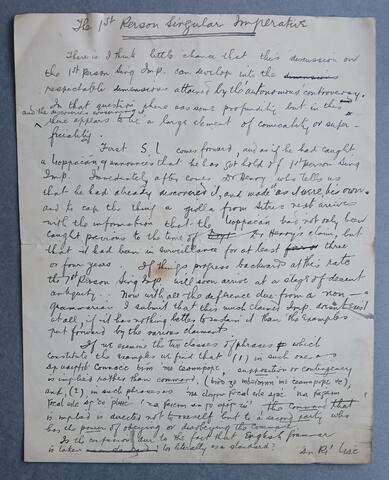 The 1st Person Singular Imperative
There is I think little chance that this discussion over
the 1st Person Sing Imp. can develop into the
respectable dimensions attained by the autonomous controversy.
In that question there was some profundity but in this
and the discoveries concerning it,
there appears to be a large element of comicality or super-
ficiality.
First S. L. comes forward, and as if he had caught
a announces that he has got hold of 1st Person Sing
Imp. Immediately after comes Dr Henry who tells us
that he had already discovered it, and made as it were, his own
and to cap the thing a from next arrives
with the information that the has not only been
caught previous to the time of Dr Henry's claim, but
that it had been in surveillance for at least three
or four years. If things progress backward at this rate
the 1st Person Sing will soon arrive at a stage of decent
antiquity. Now with all the deference due from a non-
grammarian I submit that this much claimed Imp. doesn't exist
at all, if it has nothing better to sustain it than the examples
put forward by the various claimants.
If we examine the two classes of phrases which
constitute the examples we find that (1) in such one as
supposition or contingency
is implied rather than command,
and, (2) in such phrases as
the command that
is implied is directed not to oneself but to a second party who
has the power of obeying or disobeying the command.
Is the confusion due to the fact that English Grammar
is taken too literally as a standard?